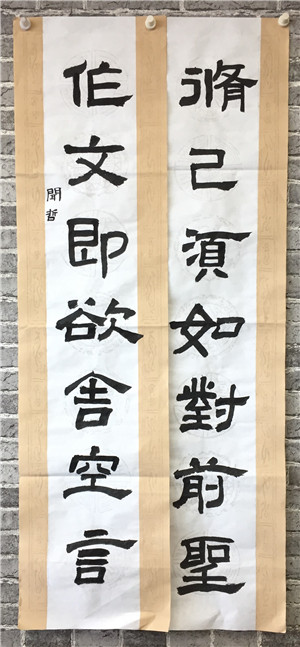 脩己須如對前聖
作文即欲舍空言
聞哲